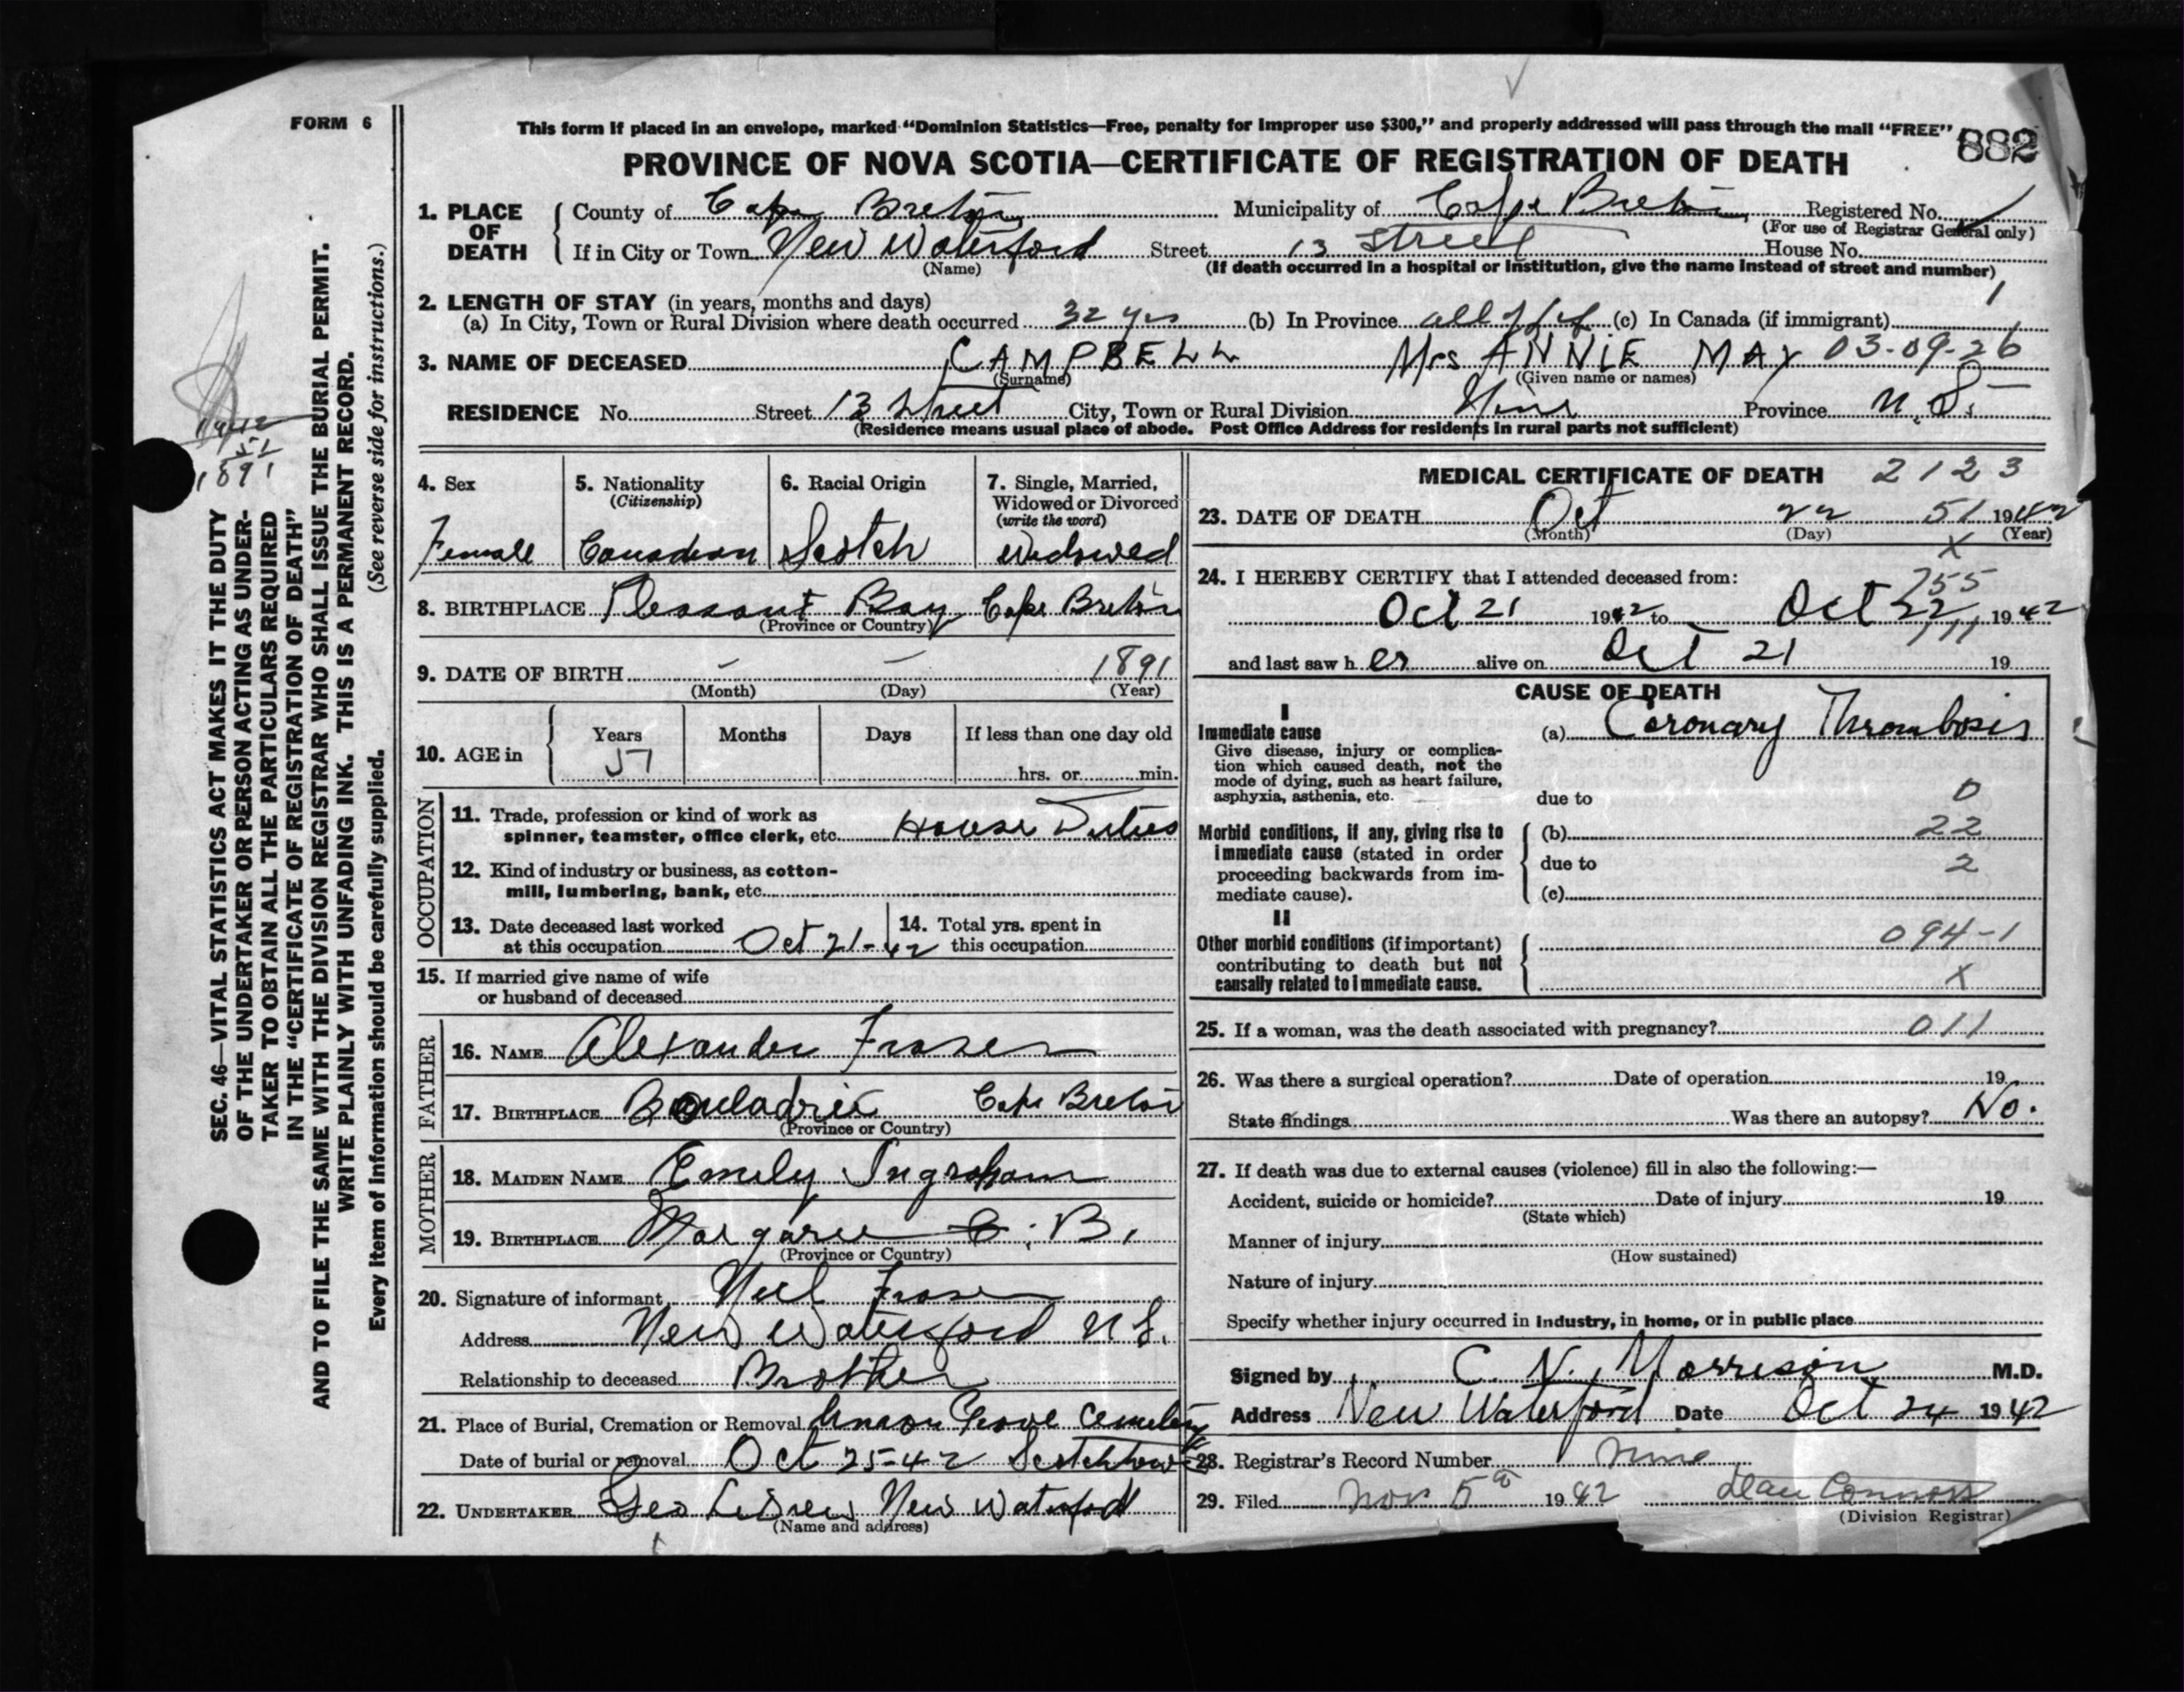 FORM 6
This form if placed in an envelope, marked "Dominion Statistics—Free, penalty for improper use $300," and properly addressed will pass through the mail "FREE"
882
PROVINCE OF NOVA SCOTIA—CERTIFICATE OF REGISTRATION OF DEATH
1. PLACE OF DEATH
County of Cape Breton Municipality of Cape Breton Registered No.
(For use of Registrar General only)
If in City or Town New Waterford Street 13 Street House No.
(Name) (If death occurred in a hospital or institution, give the name instead of street and number)
2. LENGTH OF STAY (in years, months and days) 1
(a) In City, Town or Rural Division where death occurred 32 yrs (b) In Province all of life (c) In Canada (if immigrant)
3. NAME OF DECEASED CAMPBELL Mrs ANNIE MAY 03-09-26
(Surname) (Given name or names)
RESIDENCE No. Street 13 Street City, Town or Rural Division Province N.S.
(Residence means usual place of abode. Post Office Address for residents in rural parts not sufficient)
4. Sex
Female
5. Nationality
(Citizenship)
Canadian
6. Racial Origin
Scotch
7. Single, Married, Widowed or Divorced
(write the word)
Widowed
8. BIRTHPLACE Pleasant Bay Cape Breton
(Province or Country)
9. DATE OF BIRTH – – 1891
(Month) (Day) (Year)
10. AGE in Years Months Days If less than one day old
51 hrs. or min.
OCCUPATION
11. Trade, profession or kind of work as
spinner, teamster, office clerk, etc. House Duties
12. Kind of industry or business, as cotton-
mill, lumbering, bank, etc.
13. Date deceased last worked
at this occupation Oct 21-42
14. Total yrs. spent in
this occupation
15. If married give name of wife
or husband of deceased
FATHER
16. NAME Alexander Fraser
17. BIRTHPLACE Bouladrie Cape Breton
(Province or Country)
MOTHER
18. MAIDEN NAME Emily Ingraham
19. BIRTHPLACE Margaree C. B.
(Province or Country)
20. Signature of informant Neil Fraser
Address New Waterford N S.
Relationship to deceased Brother
21. Place of Burial, Cremation or Removal Union Grove Cemetery
Date of burial or removal Oct 25-42 Scotchtown
22. UNDERTAKER Geo LeDrew New Waterford
(Name and address)
MEDICAL CERTIFICATE OF DEATH 2123
23. DATE OF DEATH Oct 22 51 1942
(Month) (Day) (Year)
X
24. I HEREBY CERTIFY that I attended deceased from:
755
Oct 21 1942 to Oct 22 1942
111
and last saw h er alive on Oct 21 19
CAUSE OF DEATH
I
Immediate cause
Give disease, injury or complica-
tion which caused death, not the
mode of dying, such as heart failure,
asphyxia, asthenia, etc.
(a) Coronary Thrombosis
due to 0
Morbid conditions, if any, giving rise to
immediate cause (stated in order
proceeding backwards from im-
mediate cause).
(b) 22
due to 2
(c)
II
Other morbid conditions (if important)
contributing to death but not
causally related to immediate cause.
094-1
X
25. If a woman, was the death associated with pregnancy? 011
26. Was there a surgical operation? Date of operation 19
State findings Was there an autopsy? No.
27. If death was due to external causes (violence) fill in also the following:—
Accident, suicide or homicide? Date of injury 19
(State which)
Manner of injury
(How sustained)
Nature of injury
Specify whether injury occurred in industry, in home, or in public place
Signed by C. N. Morrison M.D.
Address New Waterford Date Oct 24 1942
28. Registrar's Record Number nine
29. Filed Nov 5th 1942 Dean Connors
(Division Registrar)
SEC. 46—VITAL STATISTICS ACT MAKES IT THE DUTY
OF THE UNDERTAKER OR PERSON ACTING AS UNDER-
TAKER TO OBTAIN ALL THE PARTICULARS REQUIRED
IN THE "CERTIFICATE OF REGISTRATION OF DEATH"
AND TO FILE THE SAME WITH THE DIVISION REGISTRAR WHO SHALL ISSUE THE BURIAL PERMIT.
WRITE PLAINLY WITH UNFADING INK. THIS IS A PERMANENT RECORD.
Every item of information should be carefully supplied. (See reverse side for instructions.)
1942
51
1891